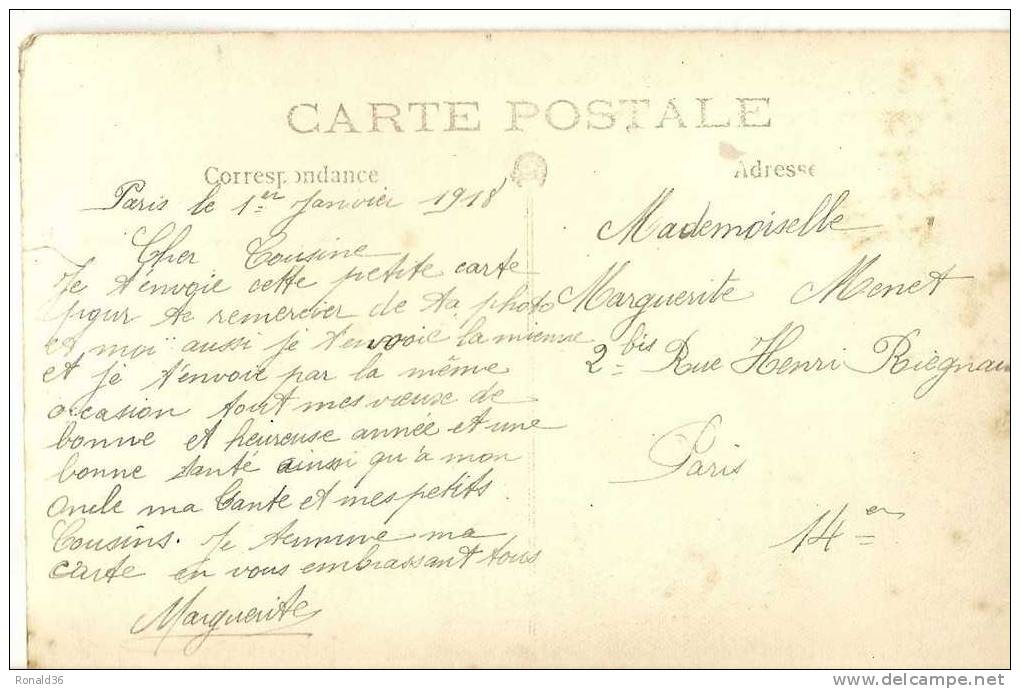 CARTE POSTALE
Correspondance
Adresse
Paris le 1er Janvier 1918
Cher Cousine
Je t'envoie cette petite carte
pour te remercier de ta photo
et moï aussi je t'envoie la mienne
et je t'envoie par la même
occasion tout mes vœuse de
bonne et heureuse année et une
bonne santé ainsi qu'a mon
oncle ma tante et mes petits
Cousins. Je termine ma
carte en vous embrassant tous
Marguerite
Mademoiselle
Marguerite Menet
2 bis Rue Henri Riegnau
Paris
14 en
Ronald36
www.delcampe.net